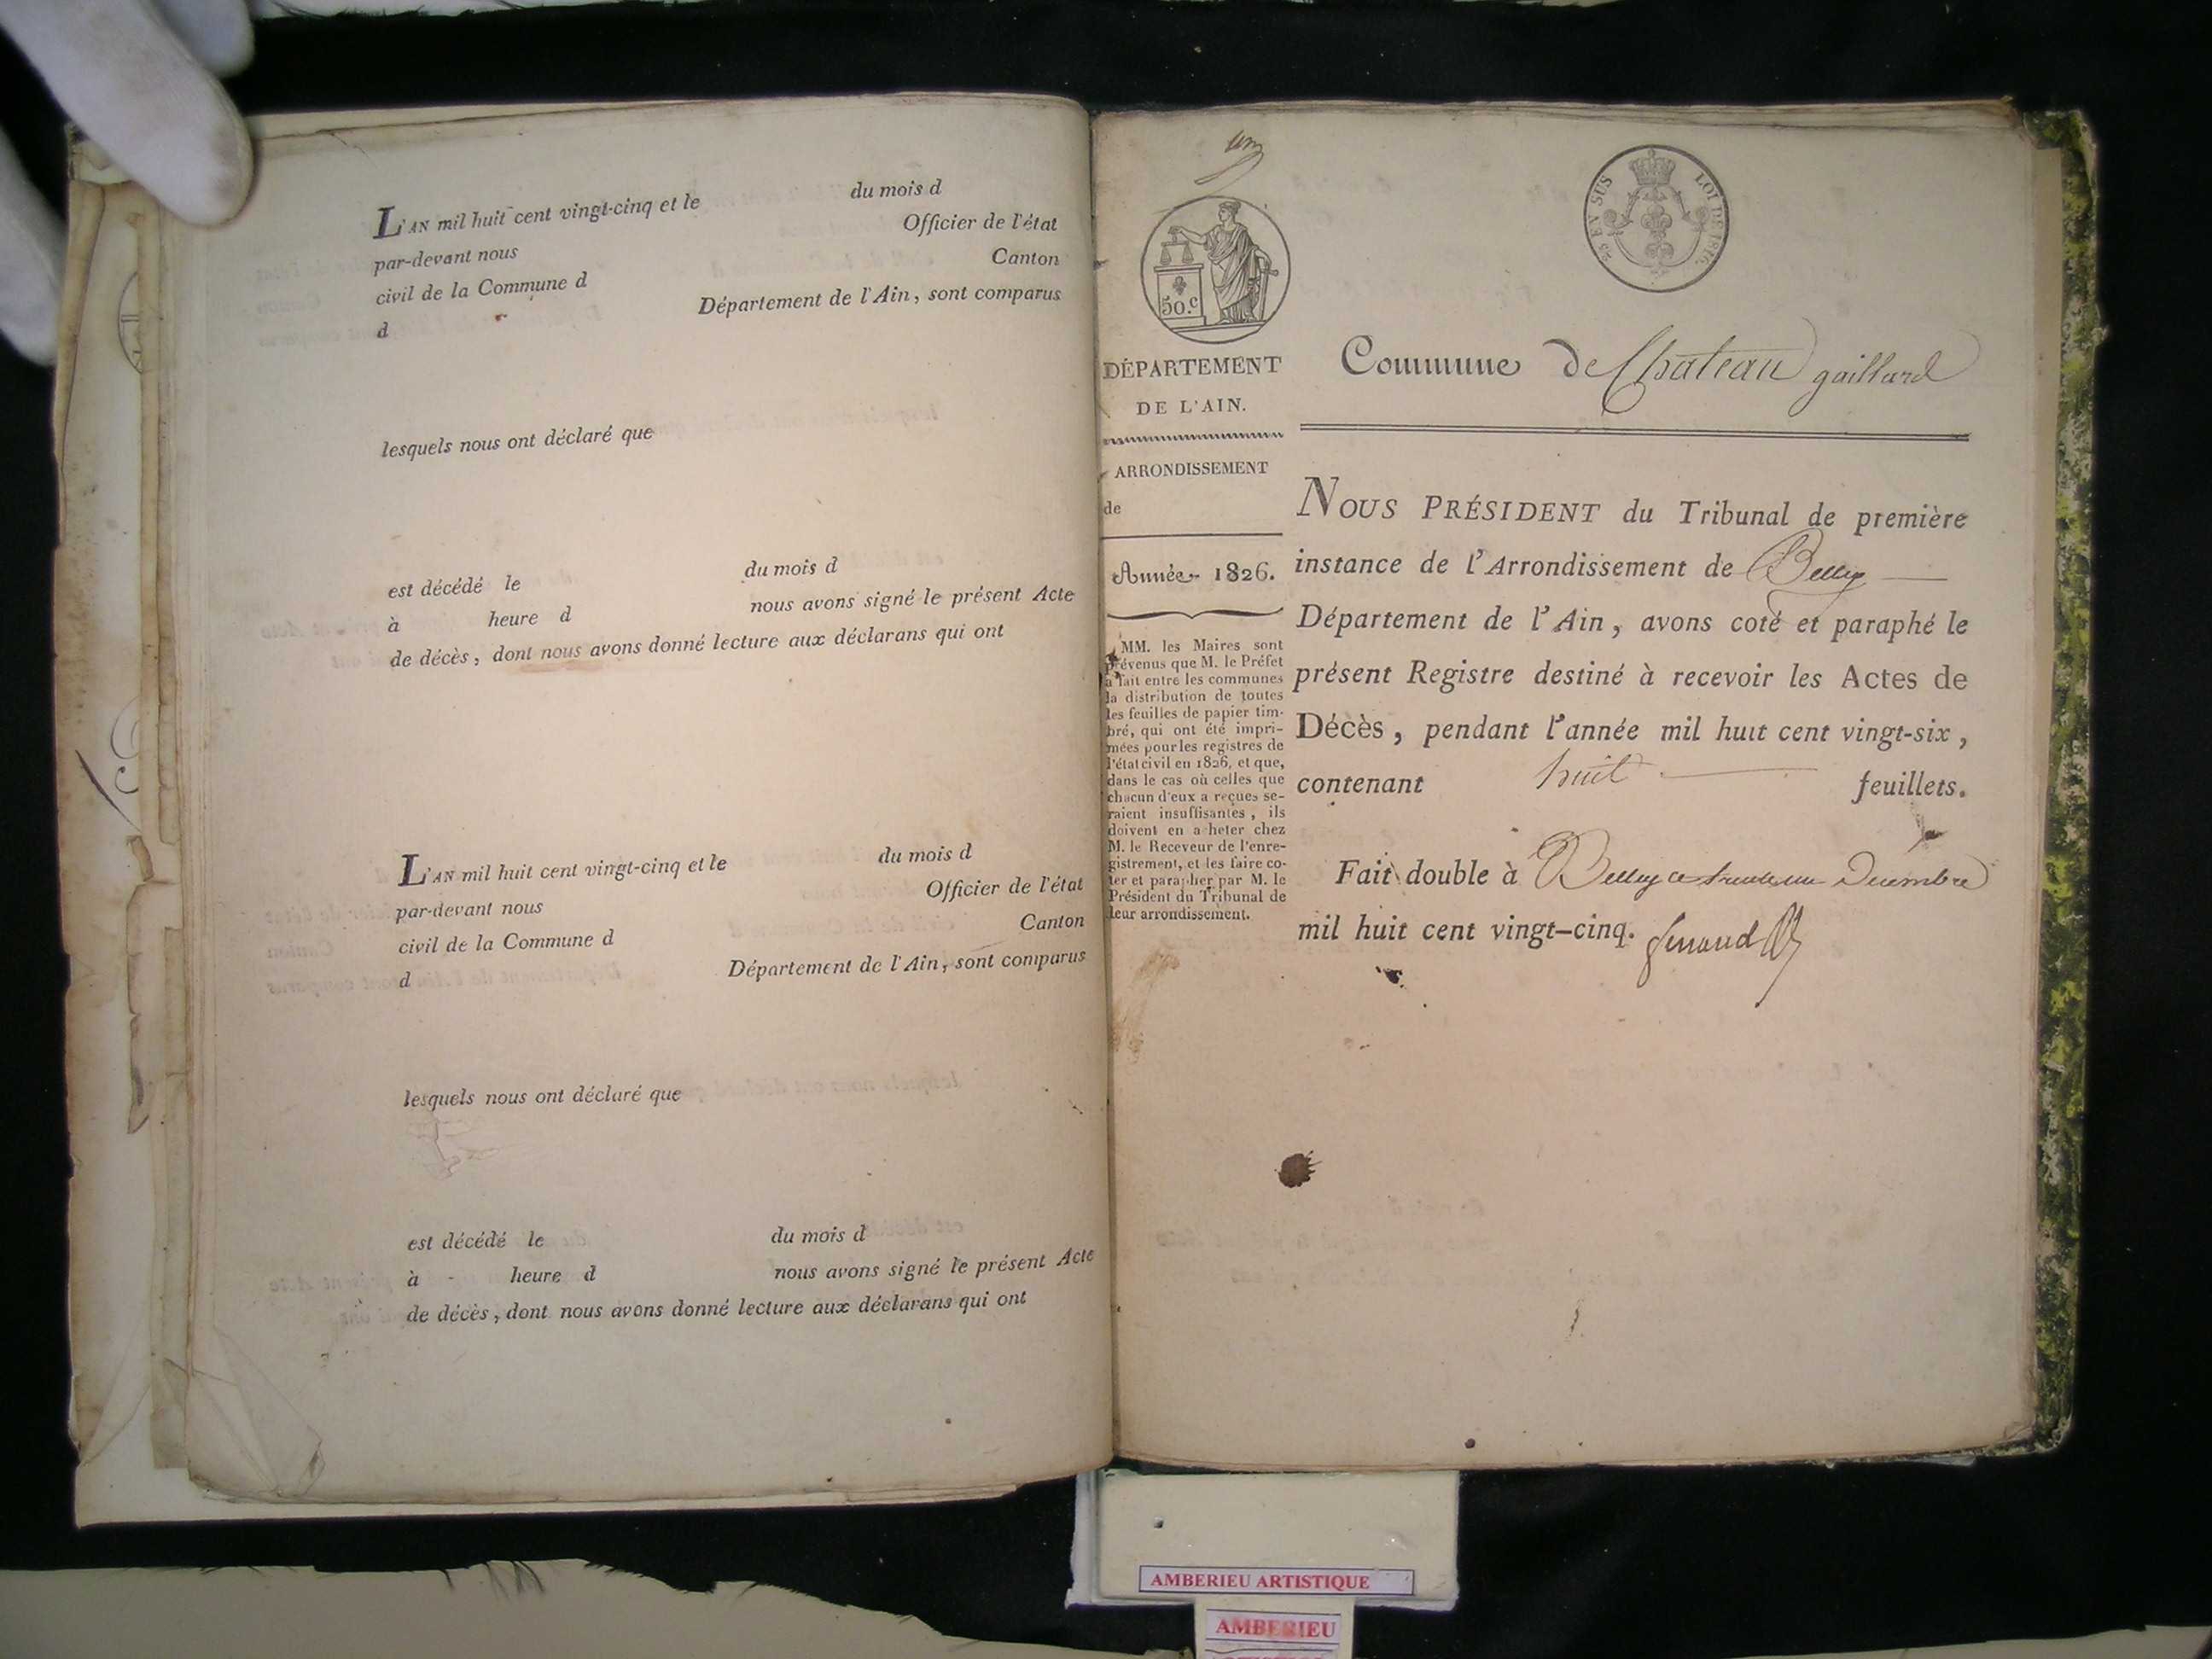 L'AN mil huit cent vingt-cinq et le du mois d
par-devant nous Officier de l'état
civil de la Commune d Canton
d Département de l'Ain, sont comparus
lesquels nous ont déclaré que
est décédé le du mois d
à heure d nous avons signé le présent Acte
de décès, dont nous avons donné lecture aux déclarans qui ont
L'AN mil huit cent vingt-cinq et le du mois d
par-devant nous Officier de l'état
civil de la Commune d Canton
d Département de l'Ain, sont comparus
lesquels nous ont déclaré que
est décédé le du mois d
à heure d nous avons signé le présent Acte
de décès, dont nous avons donné lecture aux déclarans qui ont
un
50.c
DÉPARTEMENT
DE L'AIN.
ARRONDISSEMENT
de
Année 1826.
MM. les Maires sont
prévenus que M. le Préfet
a fait entre les communes
la distribution de toutes
les feuilles de papier tim-
bré, qui ont été impri-
mées pour les registres de
l'état civil en 1826, et que,
dans le cas où celles que
chacun d'eux a reçues se-
raient insuffisantes, ils
doivent en a heter chez
M. le Receveur de l'enre-
gistrement, et les faire co-
ter et parapher par M. le
Président du Tribunal de
leur arrondissement.
25 EN SUS LOI DE 1816.
Commune de Chateau gaillard
NOUS PRÉSIDENT du Tribunal de première
instance de l'Arrondissement de Belley
Département de l'Ain, avons coté et paraphé le
présent Registre destiné à recevoir les Actes de
Décès, pendant l'année mil huit cent vingt-six,
contenant huit feuillets.
Fait double à Belley ce trente un Décembre
mil huit cent vingt-cinq.
AMBERIEU ARTISTIQUE
AMBERIEU